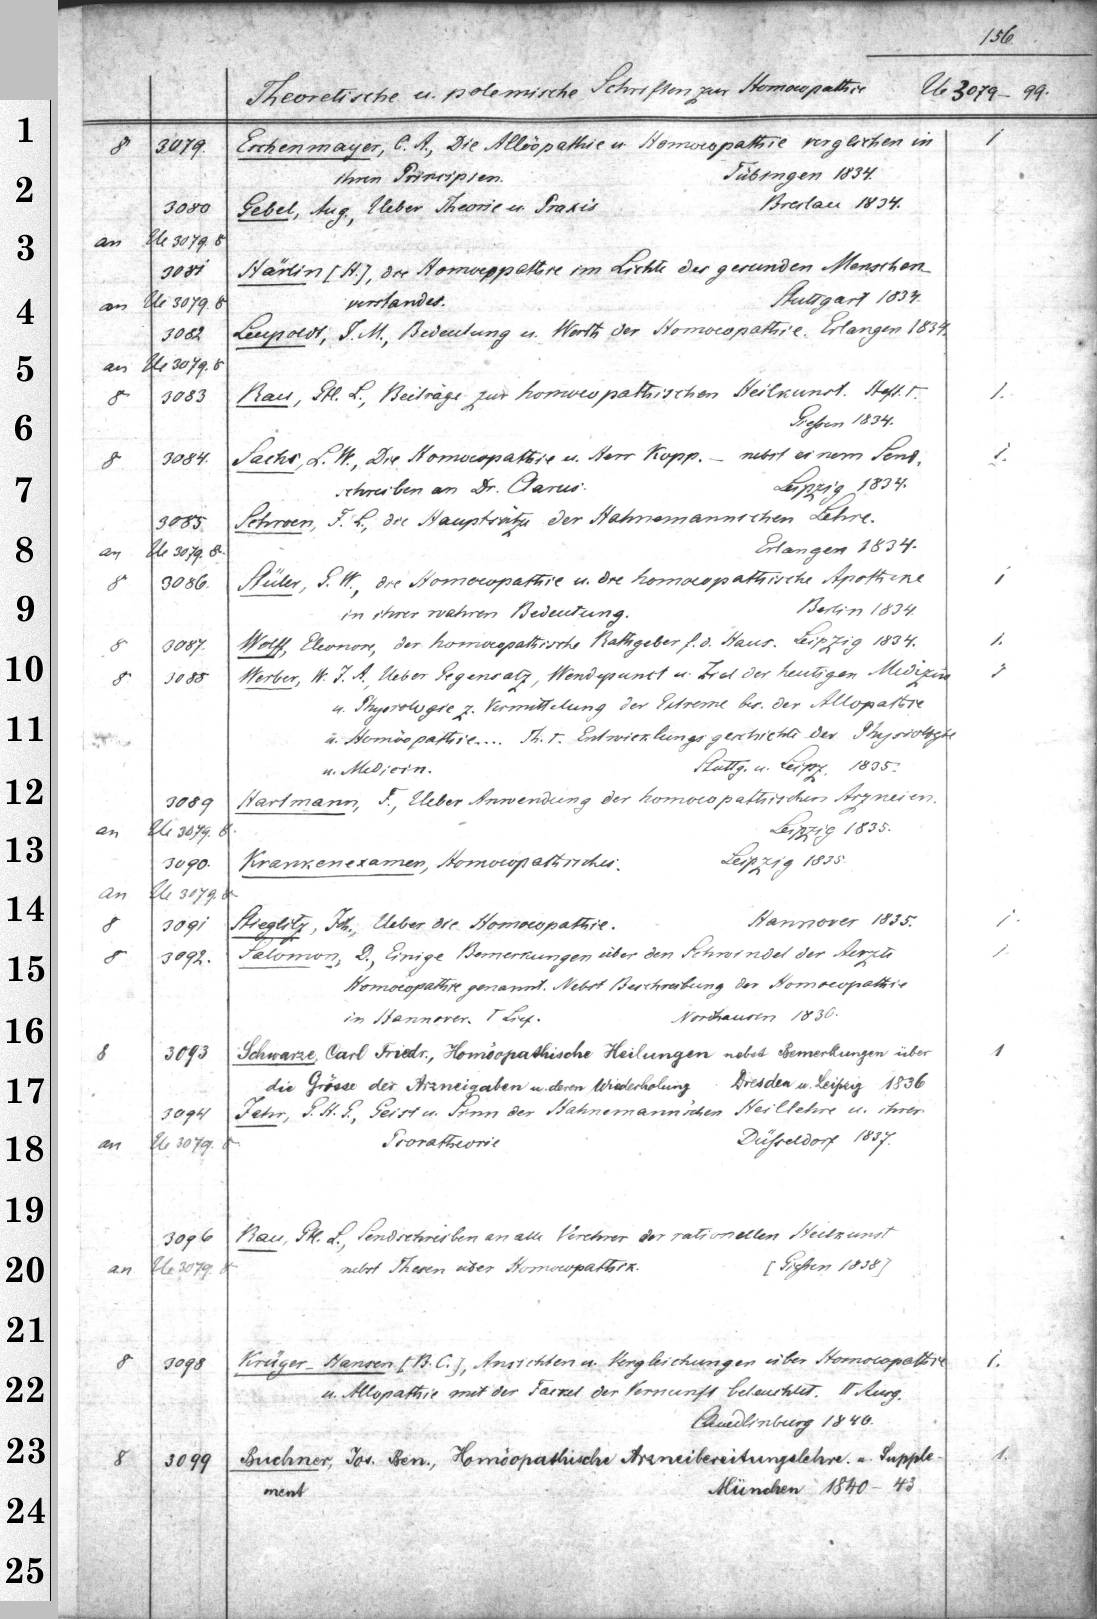 156
Theoretische u. polemische Schriften zur Homoeopathie Ue 3079 - 99.
1
8 3079. Eschenmayer, C. A., Die Allöopathie u Homoeopathie verglichen in 1
ihren Principien. Tübingen 1834.
2
3080 Gebel, Aug., Ueber Theorie u. Praxis Breslau 1834.
3
an Ue 3079. 8
3081 Härlin [H.], die Homoeopathie im Lichte des gesunden Menschen
4
an Ue 3079 8 verstandes. Stuttgart 1834.
3082 Leupoldt, J. M., Bedeutung u. Werth der Homoeopathie. Erlangen 1834.
5
an Ue 3079. 8
8 3083 Rau, Gtl. L., Beiträge zur homoeopathischen Heilkunst. Heft. I. 1.
6
Giessen 1834.
8 3084. Sachs, L. W., Die Homoeopathie u. Herr Kopp. – nebst einem Send. 1.
7
schreiben an Dr. Clarus. Leipzig 1834.
3085 Schroen, F. L., die Hauptsätze der Hahnemannischen Lehre.
8
an Ue 3079. 8. Erlangen 1834.
8 3086. Stüler, G. W., die Homoeopathie u. die homoeopathische Apotheke 1
9
in ihrer wahren Bedeutung. Berlin 1834.
8 3087. Wolff, Eleonore, der homoeopathische Rathgeber f. d. Haus. Leipzig 1834. 1.
10
8 3088 Werber, W. J. A, Ueber Gegensatz, Wendepunct u. Ziel der heutigen Medizin 1
u. Physiologie z. Vermittelung der Extreme bes. der Allopathie
11
u. Homöopathie.... Th. I. Entwicklungsgeschichte der Physiologie
u. Medicin. Stuttg. u. Leipz. 1835.
12
3089 Hartmann, F., Ueber Anwendung der homoeopathischen Arzneien.
an Ue 3079. 8. Leipzig 1835.
13
3090. Krankenexamen, Homoeopathisches. Leipzig 1835
an Ue 3079. 8
14
8 3091 Stieglitz, Joh., Ueber die Homoeopathie. Hannover 1835. 1.
8 3092. Salomon, D., Einige Bemerkungen über den Schwindel der Aerzte 1.
15
Homoeopathie genannt. Nebst Beschreibung der Homoeopathie
in Hannover. I Lief. Nordhausen 1836.
16
8 3093 Schwarze, Carl Friedr., Homöopathische Heilungen nebst Bemerkungen über 1
17
die Grösse der Arzneigaben u. deren Wiederholung Dresden u. Leipzig 1836
3094 Jahr, G. H. G., Geist u. Sinn der Hahnemann'schen Heillehre u. ihrer
18
an Ue 3079. 8 Psoratheorie Düsseldorf 1837.
19
3096 Rau, Gtl. L., Sendschreiben an alle Verehrer der rationellen Heilkunst
20
an Ue 3079. 8 nebst Thesen über Homoeopathik. [Giessen 1838]
21
8 3098 Krüger-Hansen [B. C.], Ansichten u. Vergleichungen über Homoeopathie 1.
22
u. Allopathie mit der Fackel der Vernunft beleuchtet. II Ausg.
Quedlinburg 1840.
23
8 3099 Buchner, Jos. Ben., Homöopathische Arzneibereitungslehre. u. Supple- 1.
24
ment München 1840 - 43
25